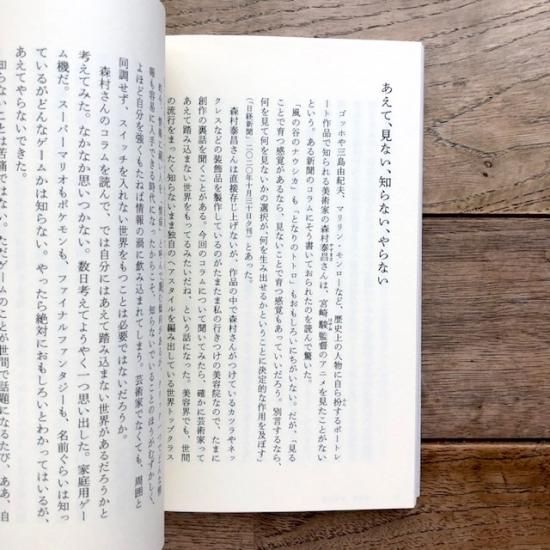 あえて、見ない、知らない、やらない
ゴッホや三島由紀夫、マリリン・モンローなど、歴史上の人物に自ら扮するポートレ
ート作品で知られる美術家の森村泰昌さんは、宮崎駿監督のアニメを見たことがない
という。ある新聞のコラムにそう書いておられたのを読んで驚いた。
「風の谷のナウシカ」も「となりのトトロ」もおもしろいにちがいない。だが、「見る
ことで育つ感覚があるなら、見ないことで育つ感覚もあっていいだろう。別言するなら、
何を見て何を見ないかの選択が、何を生み出せるかということに決定的な作用を及ぼす」
(「日経新聞」二〇二〇年十月三十日夕刊)とあった。
森村泰昌さんは直接存じ上げないが、作品の中で森村さんがつけているカツラやネッ
クレスなどの装飾品を製作しているのがたまたま私の行きつけの美容院なので、たまに
創作の裏話を聞くことがある。今回のコラムについて聞いてみたら、確かに芸術家って
あえて踏み込まない世界をもってるみたいだね、という話になった。美容界でも、世間
の流行をまったく知らないまま独自のヘアスタイルを編み出している世界トップクラス
報も容易に入手できる時代になったからこそ、知らないでいることのほうがむずかしく、
よほど自分を強くもたねば情報の渦に飲み込まれてしまう。芸術家でなくても、周囲と
同調せず、スイッチを入れない世界をもつことは必要ではないだろうか。
森村さんのコラムを読んで、では自分にはあえて踏み込まない世界があるだろうかと
考えてみた。なかなか思いつかない。数日考えてようやく一つ思い出した。家庭用ゲー
ム機だ。スーパーマリオもポケモンも、ファイナルファンタジーも、名前ぐらいは知っ
ているがどんなゲームかは知らない。やったら絶対におもしろいとわかってはいるが、
あえてやらないできた。
知らないことは苦痛ではない。ただゲームのことが世間で話題になるたび、ああ、自